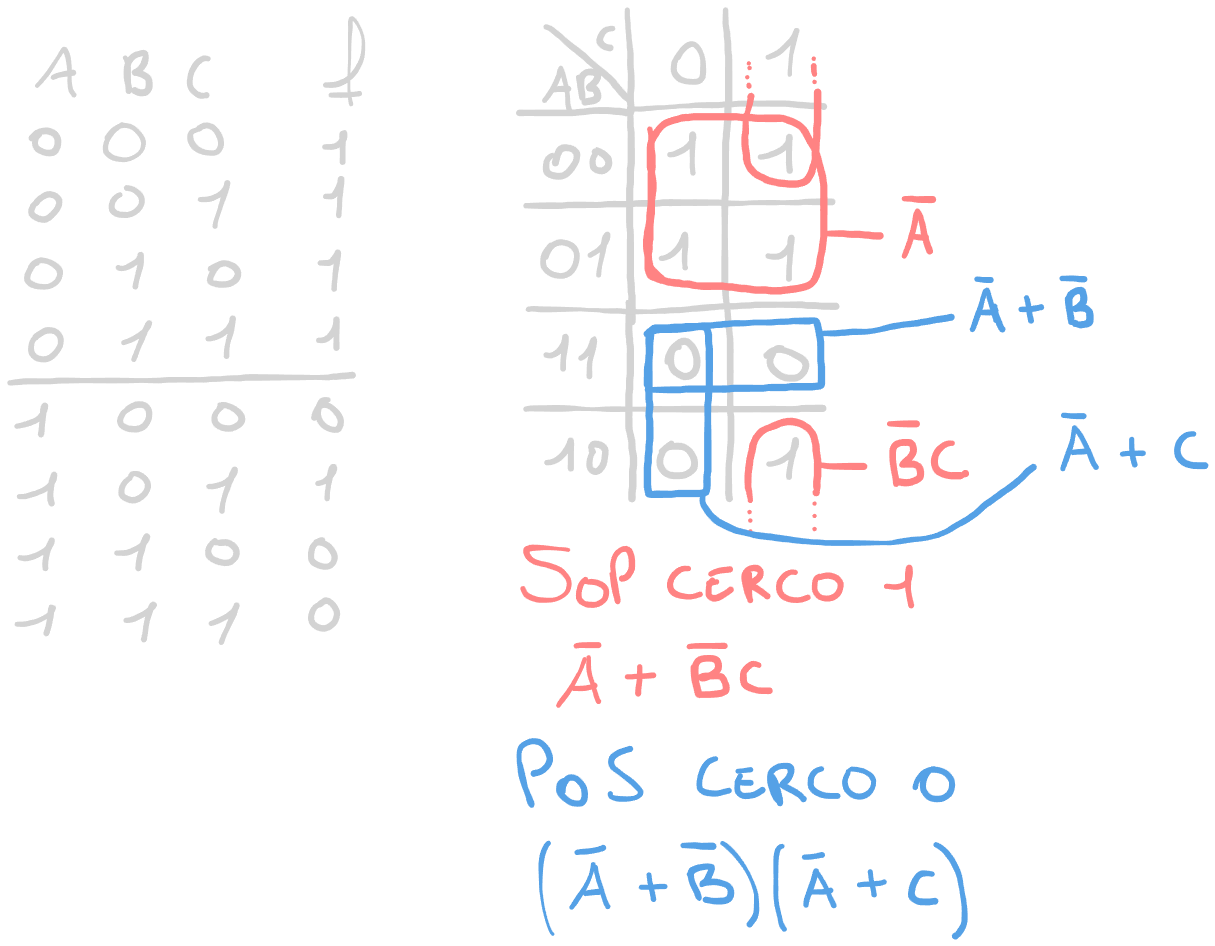 A B C f
0 0 0 1
0 0 1 1
0 1 0 1
0 1 1 1
1 0 0 0
1 0 1 1
1 1 0 0
1 1 1 0
C
AB
0 1
00 1 1
01 1 1
A̅
11 0 0
A̅ + B̅
10 0 1
B̅C
A̅ + C
SOP CERCO 1
A̅ + B̅C
POS CERCO 0
(A̅ + B̅)(A̅ + C)